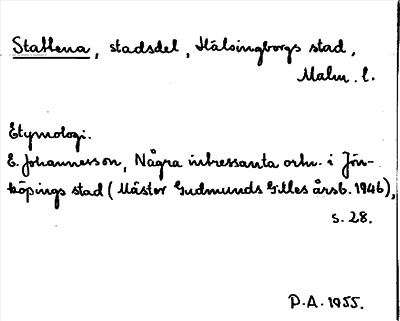 Stattena, stadsdel, Hälsingborgs stad,
Malm. l.
Etymologi.
E. Johannesson, Några intressanta ortn. i Jön-
köpings stad (Mäster Gudmunds Gilles årsb. 1946),
s. 28.
P.A. 1955.